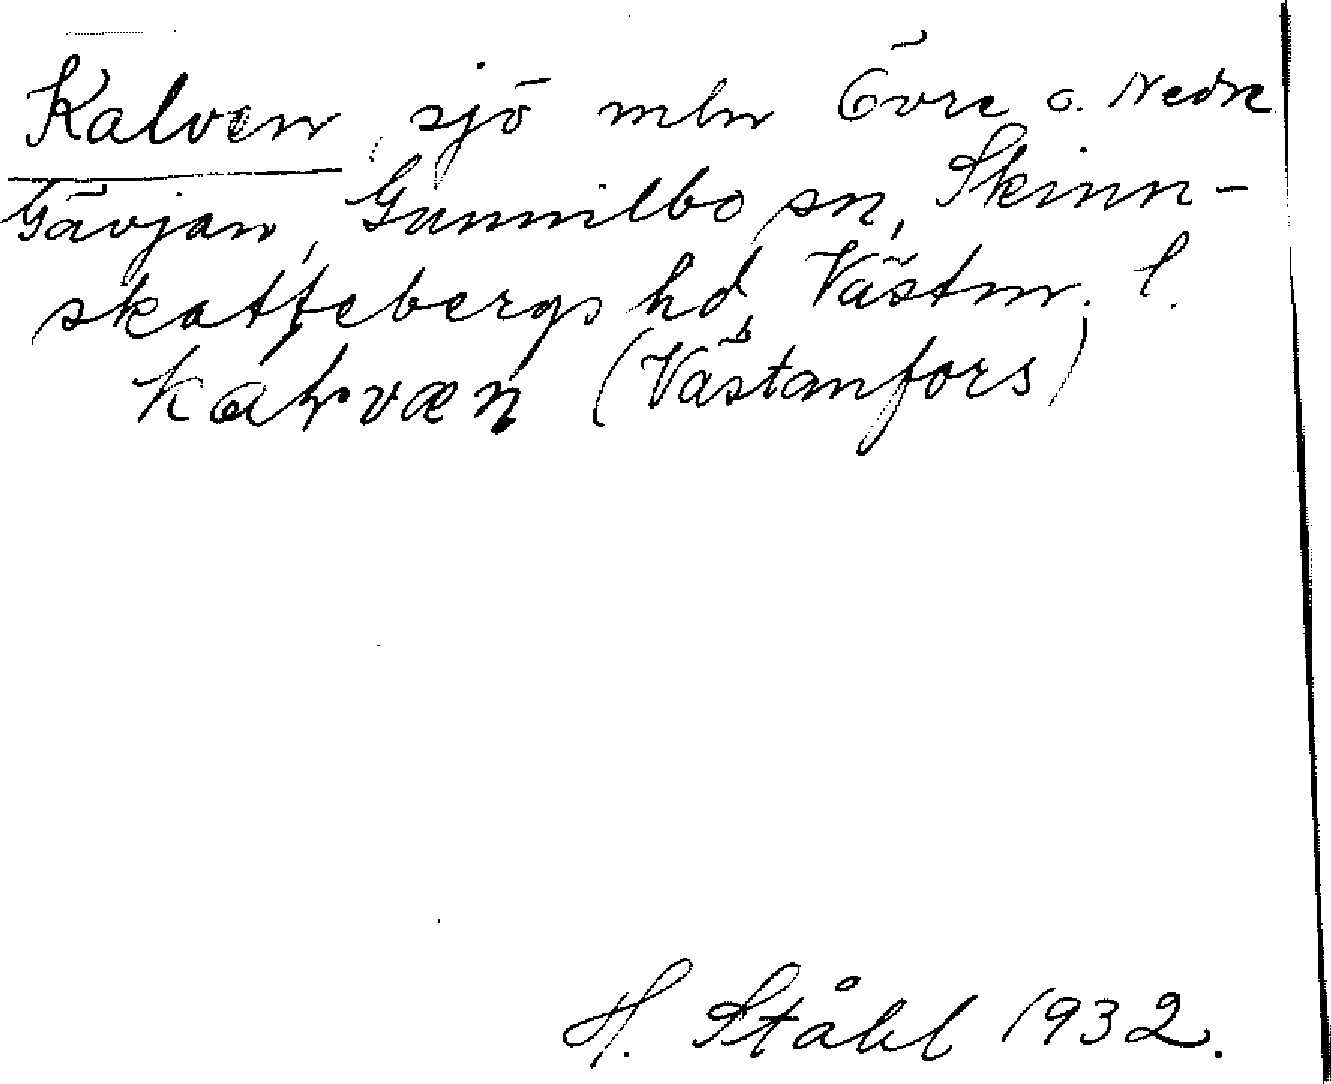 Kalven, sjö mln Övre o. Nedre
Gävjan, Gunnilbo sn, Skinn-
skattebergs hd, Västm. l.
kaɽvæn (Västanfors)
H. Ståhl 1932.